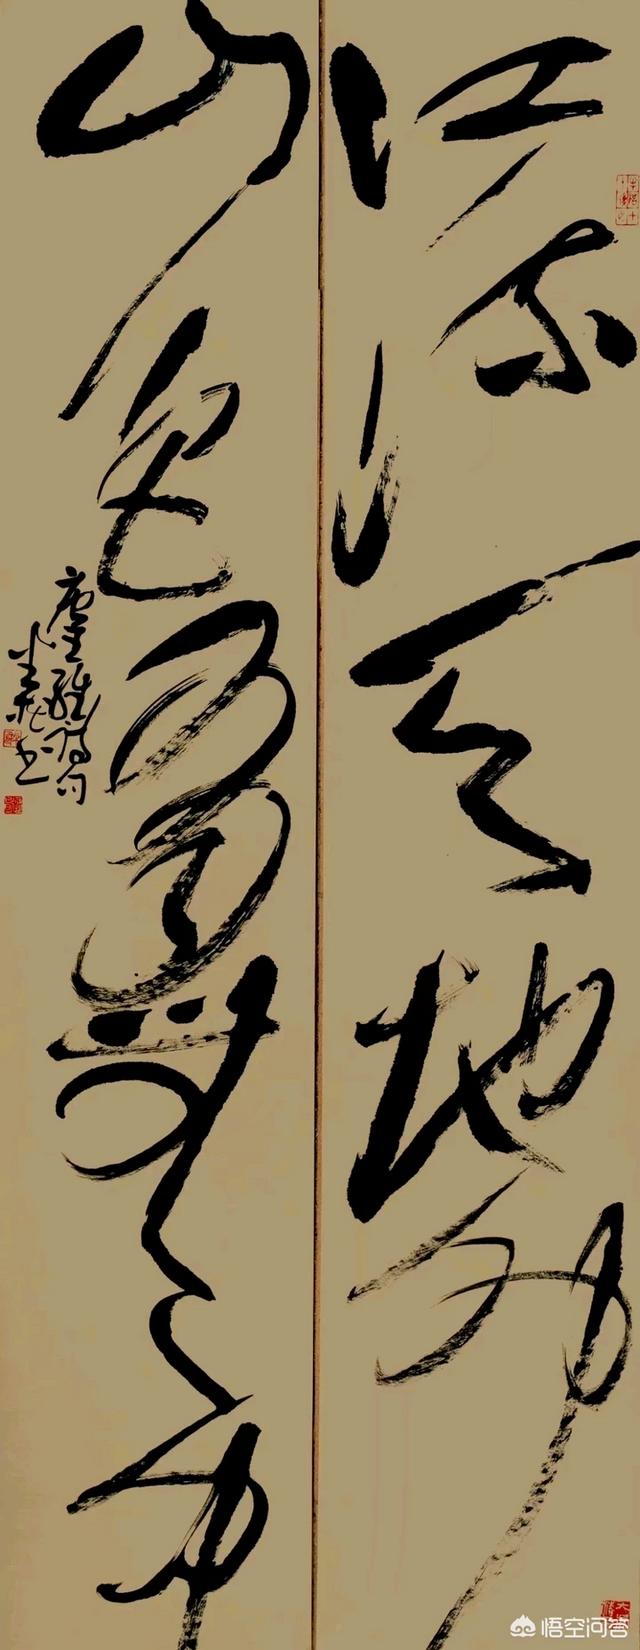 江流天地外
山色有無中
唐王維詩句
书
悟空问答